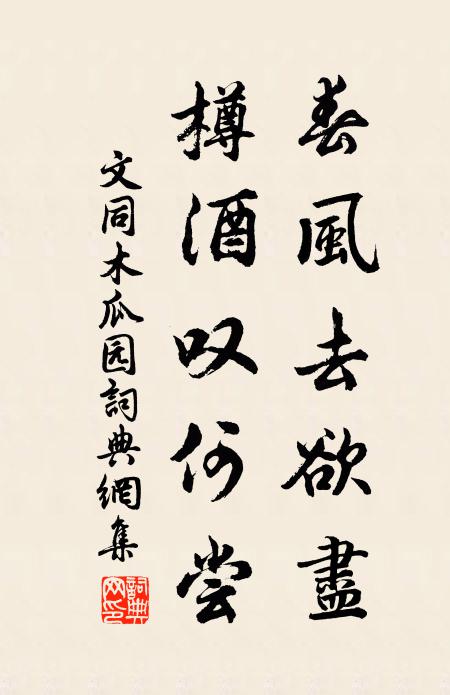 春風去欲盡
樽酒叹何尝
文同木瓜园詞典網集
詞典网印